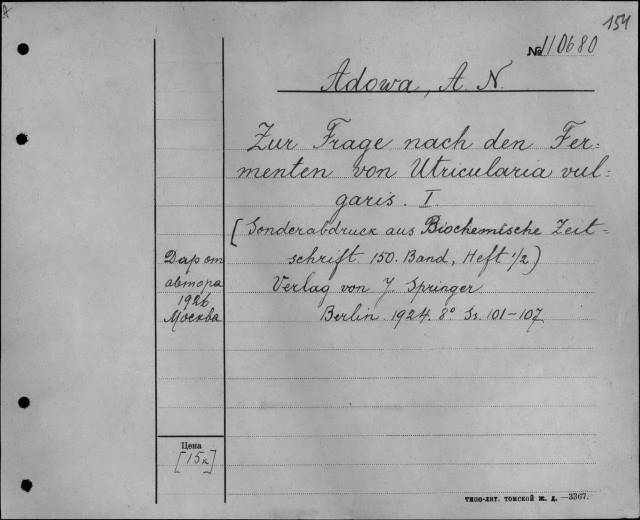 154
№ 110680
Adowa, A. N.
Zur Frage nach den Fer=
menten von Utricularia vul=
garis. I.
[Sonderabdruck aus Biochemische Zeit=
schrift. 150. Band, Heft 1/2)
Verlag von J. Springer
Berlin. 1924. 8° Ss. 101-107
Дар от
автора
1926
Москва
Цена
[15к]
ТИПО-ЛИТ. ТОМСКОЙ Ж. Д. —3367.